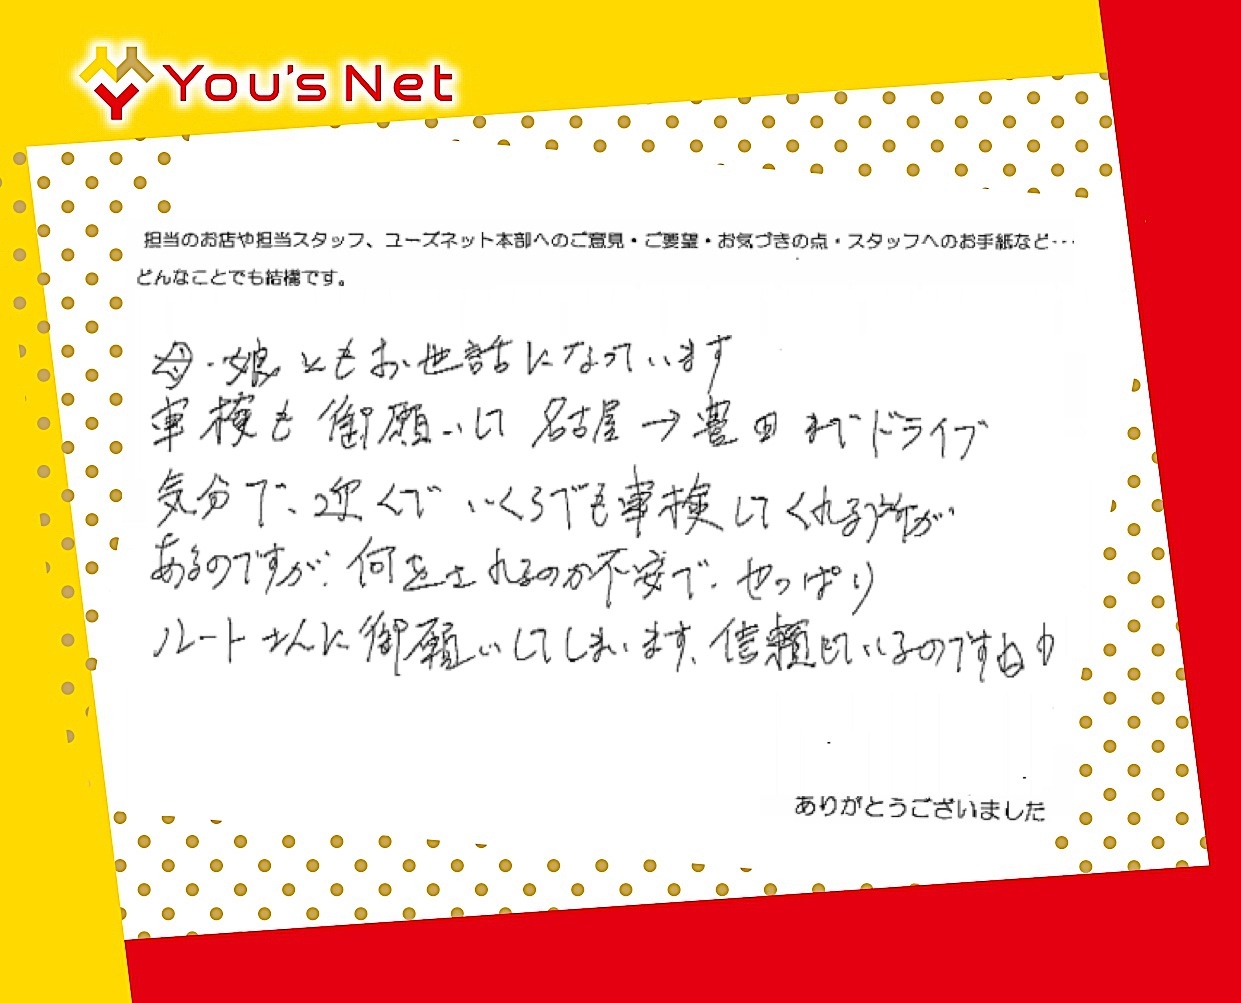 You's Net
担当のお店や担当スタッフ、ユーズネット本部へのご意見・ご要望・お気づきの点・スタッフへのお手紙など…
どんなことでも結構です。
母・娘ともお世話になっています
車検も御願いして名古屋→豊田までドライブ
気分で、近くでいくらでも車検してくれる所が
あるのですが、何をされるのか不安で、やっぱり
ルートさんに御願いしてしまいます、信頼しているのですね
ありがとうございました